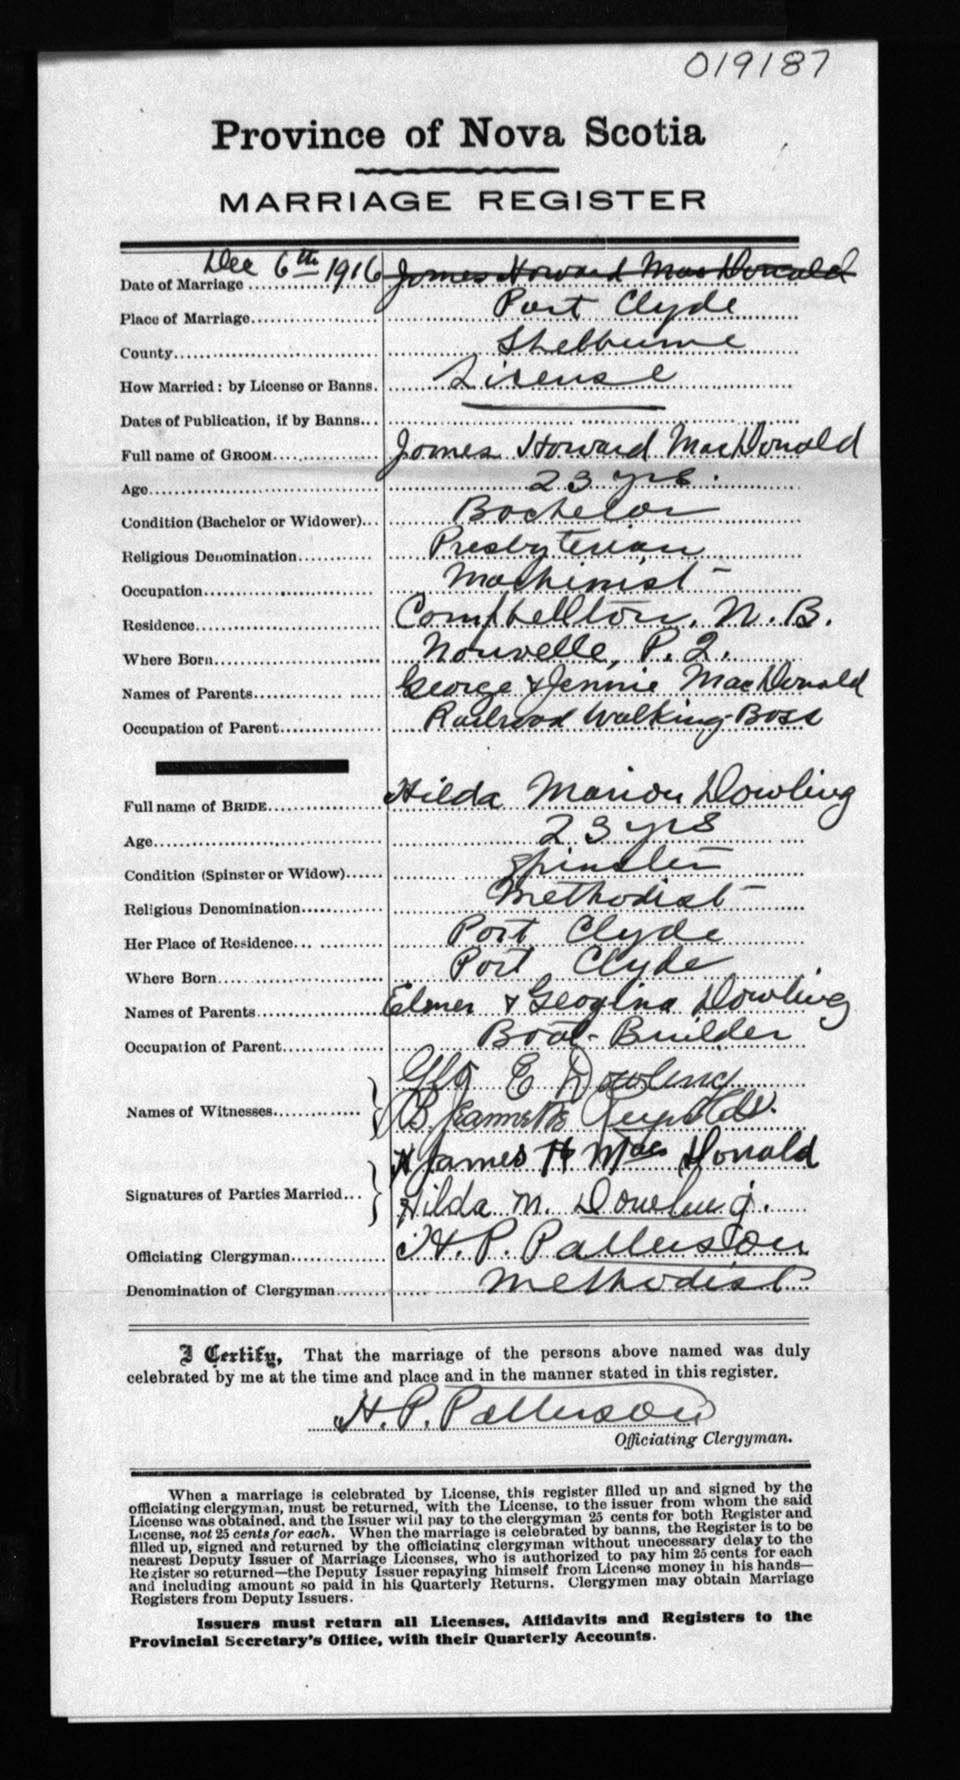 019187
Province of Nova Scotia
MARRIAGE REGISTER
Date of Marriage Dec 6th 1916 James Howard MacDonald
Place of Marriage Port Clyde
County Shelburne
How Married: by License or Banns. License
Dates of Publication, if by Banns
Full name of GROOM James Howard MacDonald
Age 23 yrs.
Condition (Bachelor or Widower) Bachelor
Religious Denomination Presbyterian
Occupation Machinist
Residence Campbellton, N.B.
Where Born Nouvelle, P.Q.
Names of Parents George & Jennie MacDonald
Occupation of Parent Railroad Walking-Boss
Full name of BRIDE Hilda Marion Dowling
Age 23 yrs
Condition (Spinster or Widow) Spinster
Religious Denomination Methodist
Her Place of Residence Port Clyde
Where Born Port Clyde
Names of Parents Elmer & Geogina Dowling
Occupation of Parent Boat-Builder
Geo E Dowling
Names of Witnesses B. Jeannette Reynolds.
James H MacDonald
Signatures of Parties Married Hilda M. Dowling.
Officiating Clergyman H. P. Patterson
Denomination of Clergyman Methodist
I Certify, That the marriage of the persons above named was duly
celebrated by me at the time and place and in the manner stated in this register.
H. P. Patterson
Officiating Clergyman.
When a marriage is celebrated by License, this register filled up and signed by the
officiating clergyman, must be returned, with the License, to the issuer from whom the said
License was obtained, and the Issuer will pay to the clergyman 25 cents for both Register and
License, not 25 cents for each. When the marriage is celebrated by banns, the Register is to be
filled up, signed and returned by the officiating clergyman without unecessary delay to the
nearest Deputy Issuer of Marriage Licenses, who is authorized to pay him 25 cents for each
Register so returned—the Deputy Issuer repaying himself from License money in his hands—
and including amount so paid in his Quarterly Returns. Clergymen may obtain Marriage
Registers from Deputy Issuers.
Issuers must return all Licenses, Affidavits and Registers to the
Provincial Secretary's Office, with their Quarterly Accounts.